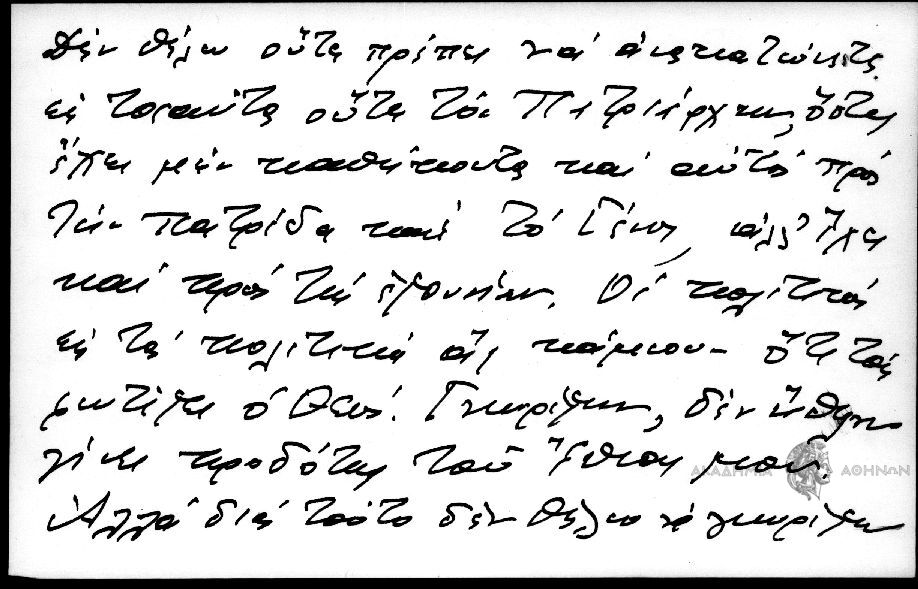 Δὲν θέλω οὔτε πρέπει νὰ ἀνακατώσητε
εἰς τοιαῦτα οὔτε τὸν Πατριάρχην, ὅστις
ἔχει μὲν καθήκοντα καὶ αὐτὸς πρὸς
τὴν πατρίδα καὶ τὸ Γένος, ἀλλ' ἔχει
καὶ πρὸς τὴν ἐξουσίαν. Οἱ πολιτικοὶ
εἰς τὰ πολιτικὰ ἂς κάμουν ὅ,τι τοὺς
φωτίσει ὁ Θεός. Γνωρίζων, δὲν ἤθελον
γίνει προδότης τοῦ Ἔθνους μου.
Ἀλλὰ διὰ τοῦτο δὲν θέλω νὰ γνωρίζω
ΑΚΑΔΗΜΙΑ ΑΘΗΝΩΝ